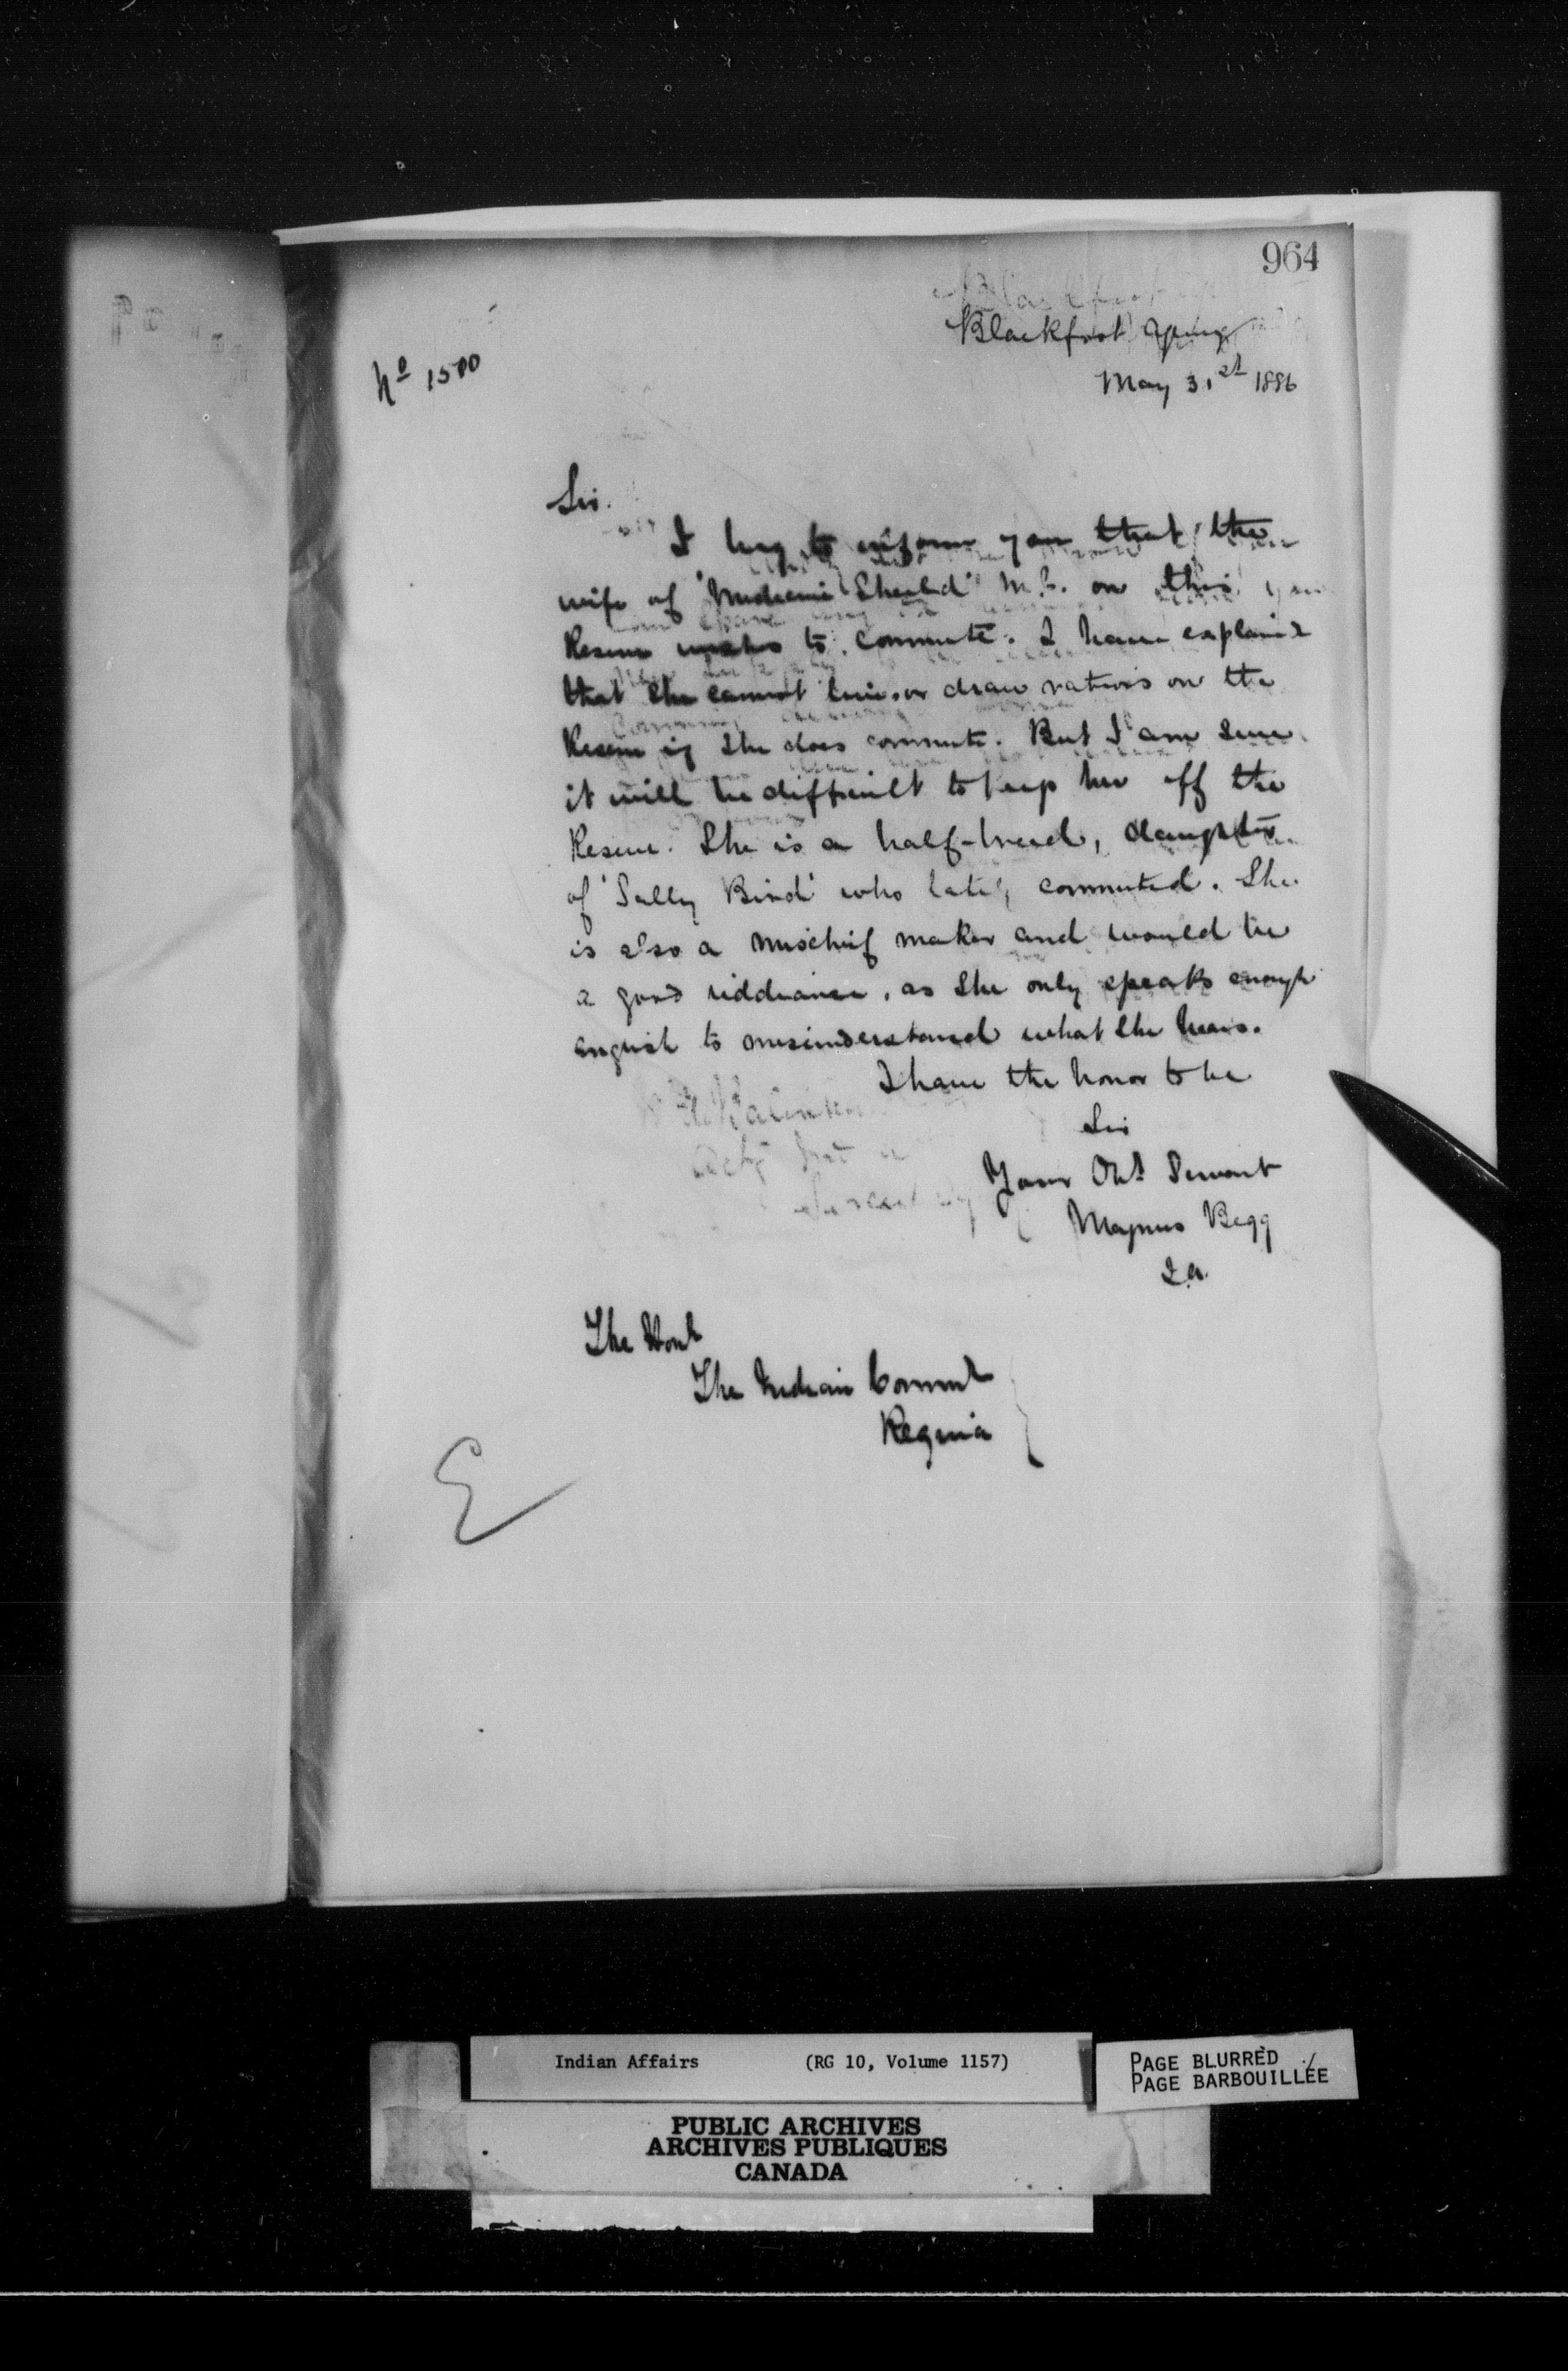 964
Blackfoot Agency
No 1500
May 31st 1886
Sir.
I beg to inform you that the
wife of 'Medicine Shield' M.C. on this
Reserve wishes to commute. I have explained
that she cannot live or draw rations on the
Reserve if she does commute. But I am sure
it will be difficult to keep her off the
Reserve. She is a half-breed, daughter
of 'Sally Bird' who lately commuted. She
is also a mischief maker and would be
a good riddance, as she only speaks enough
english to misunderstand what she hears.
I have the honor to be
Sir
Your Obt Servant
Magnus Begg
I.A.
The Honl
The Indian Commr
Regina
E
Indian Affairs (RG 10, Volume 1157)
PAGE BLURRED
PAGE BARBOUILLÉE
PUBLIC ARCHIVES
ARCHIVES PUBLIQUES
CANADA